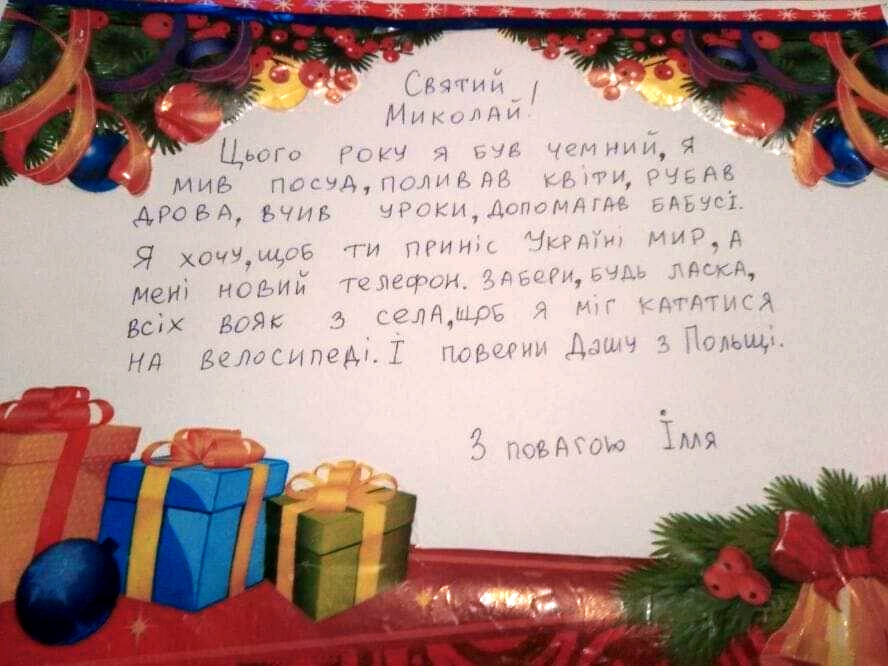 Святий
Миколай!
Цього року я був чемний, я
мив посуд, поливав квіти, рубав
дрова, вчив уроки, допомагав бабусі.
Я хочу, щоб ти приніс Україні мир, а
мені новий телефон. Забери, будь ласка,
всіх вояк з села, щоб я міг кататися
на велосипеді. І поверни Дашу з Польщі.
З повагою Ілля